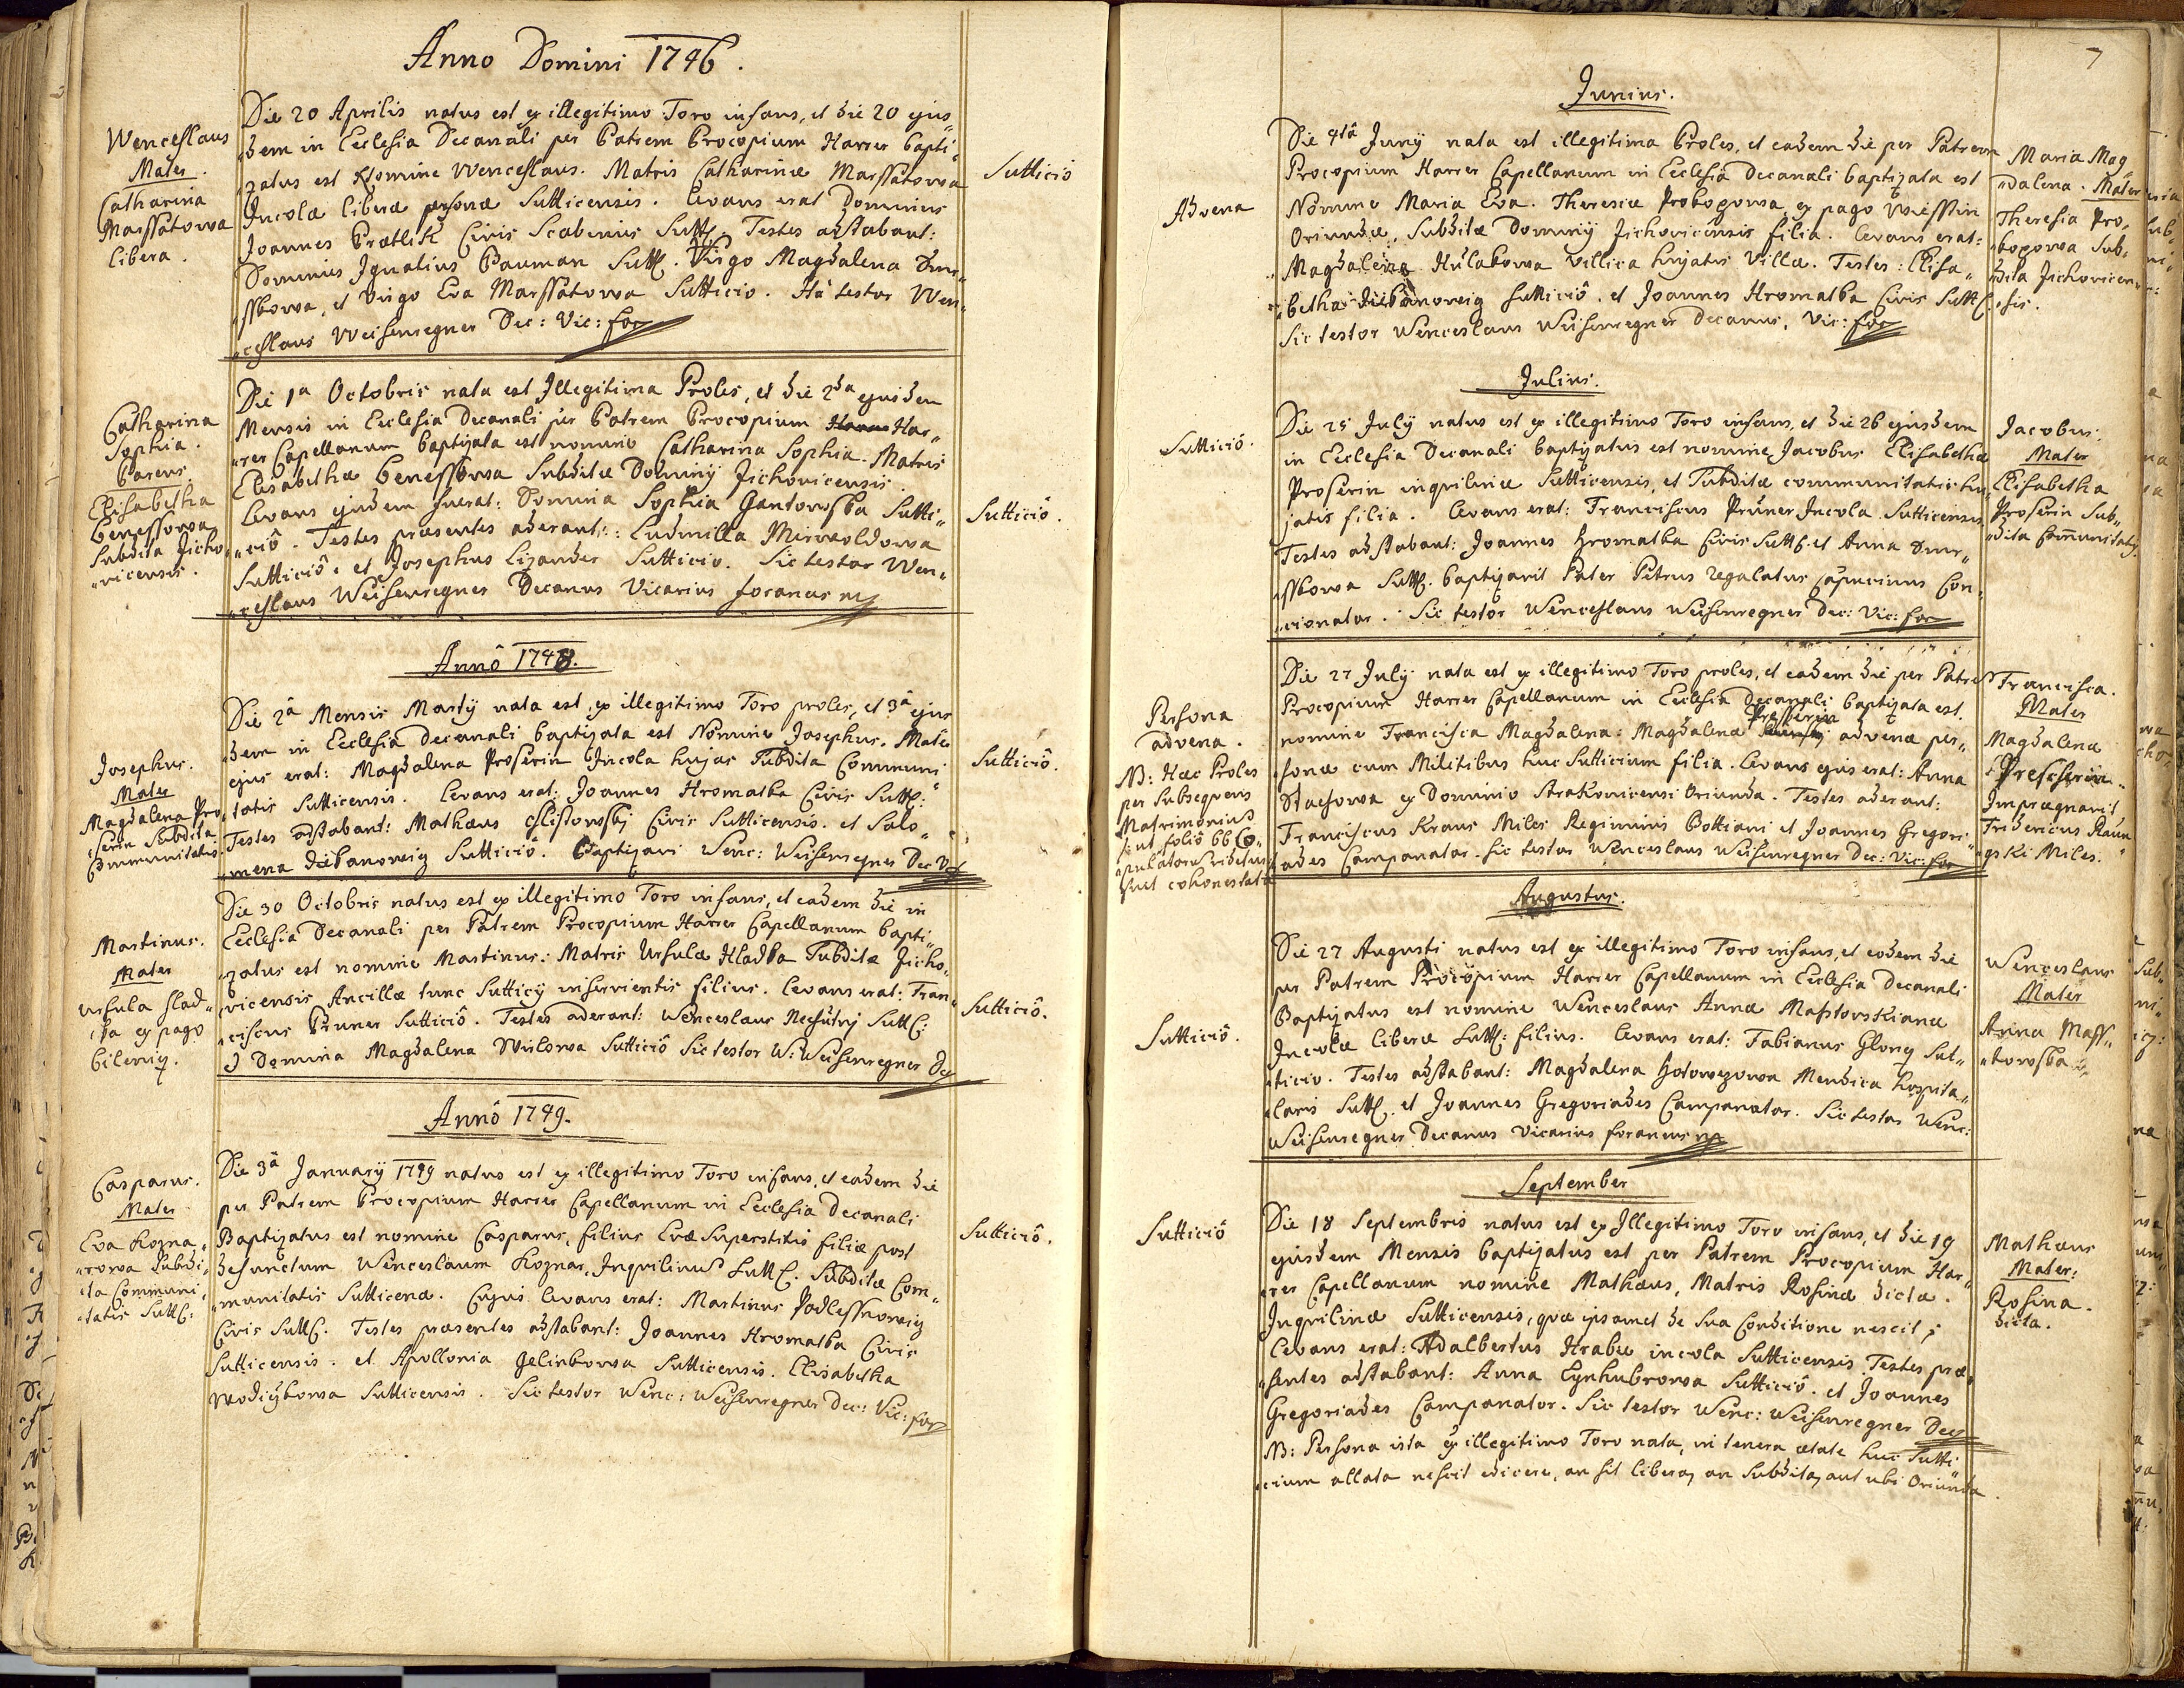 Anno Domini 1746.
Wenceslaus
Mater.
Catharina
Marssatowa
libera.
Die 20 Aprilis natus est ex illegitimo Toro infans, et die 20 ejus„
„dem in Ecclesia Decanali per Patrem Procopium Harrer bapti„
„zatus est Nomine Wenceslaus. Matris Catharinæ Marssatowa
Incolæ liberæ personæ Sutticensis. Levans erat Dominus
Joannes Prætlik Civis Scabinus Sutt. Testes adstabant:
Dominus Ignatius Pauman Sutt. Virgo Magdalena
„sskowa, et Virgo Eva Marssatowa Sutticio. Ita testor Wen„
„ceslaus Weisenregner Dec: Vic: for
Sutticio
Catharina
Sophia.
Parens
Elisabetha
Benessowa
Subdita Zicho„
„vicensis.
Die 1a Octobris nata est Illegitima Proles, et die 2da ejusdem
Mensis in Ecclesia Decanali per Patrem Procopium Har„
„rer Capellanum baptizata est nomine Catharina Sophia. Matris
Elisabethæ Benesskowa Subditæ Dominij Zichovicensis.
Levans ejusdem fuerat: Domina Sophia Gantowska Sutti„
„ciô. Testes præsentes aderant: Ludmilla Mirwoldowa
Sutticiô. et Josephus Lizander Sutticio. Sic testor Wen„
„ceslaus Weisenregner Decanus Vicarius foraneus mp
Sutticiô.
Annô 1748.
Josephus.
Mater
Magdalena Pro„
„serin Subdita
Communitatis.
Die 2â Mensis Martij nata est ex illegitimo Toro proles, et 3â ejus
dem in Ecclesia Decanali baptizata est Nomine Josephus. Mater
ejus erat: Magdalena Proserin Incola hujas Subdita Communi„
„tatis Sutticensis. Levans erat: Joannes Hromatka Civis Sutt:
Testes adstabant: Mathæus Civis Sutticensis. et Salo„
„mena Sutticiô. Baptizavi Wenc: Weisenregner Dec
Sutticiô.
Martinus.
Mater
Ursula Hlad„
„ka ex pago
Bilenitz.
Die 30 Octobris natus est ex illegitimo Toro infans, et eadem die in
Ecclesia Decanali per Patrem Procopium Harrer Capellanum bapti„
„zatus est nomine Martinus. Matris Ursulæ Hladka Subditæ Zicho„
„vicensis Ancillæ tunc Sutticij inservientis filius. Levans erat: Fran„
„ciscus Pruner Sutticiô. Testes aderant: Wenceslaus Nechutny Sutt:
Domina Magdalena Sutticiô Sic testor W: Weisenregner Dec
Sutticiô.
Annô 1749.
Casparus.
Mater
Eva Kozna„
„rowa Subdi„
„ta Communi„
„tatis Sutt:
Die 3â Januarij 1749 natus est ex illegitimo Toro infans, et eadem die
per Patrem Procopium Harrer Capellanum in Ecclesia Decanali
Baptizatus est nomine Casparus, filius Evæ Superstitis filiæ post
defunctum Wenceslaum Koznar, Inquilinus Sutt. Subditæ Com„
„munitatis Sutticenæ. Cujus levans erat: Martinus Podlessnoweig
Civis Sutt. Testes præsentes adstabant: Joannes Hromatka Civis
Sutticensis. et Apollonia Jelinkowa Sutticensis. Elisabetha
Wodiczkowa Sutticensis. Sic testor Wenc: Weisenregner Dec: Vic: for
Sutticiô.
7
Junius.
Advena
Die 4tâ Junij nata est illegitima Proles, et eadem die per Patrem
Procopium Harrer Capellanum in Ecclesia Decanali baptizata est
Nomine Maria Eva. Theresiæ Probozowa ex pago
Oriundæ, Subditæ Dominij Zichovicensis filia. Levans erat:
Magdalena Kulabowa villica hujatis villæ. Testes: Elisa„
„betha Sutticiô. et Joannes Hromatka Civis Sutt.
Sic testor Wenceslaus Weisenregner Decanus, Vic: for
Maria Mag„
„dalena. Mater
Theresia Pro„
„bozowa Sub„
„dita Zichovicen„
„sis.
Julius.
Sutticiô.
Die 25 July natus est ex illegitimo Toro infans, et die 26 ejusdem
in Ecclesia Decanali baptizatus est nomine Jacobus Elisabethæ
Proserin inquilinæ Sutticensis, et Subditæ communitatis hu„
jatis filia. Levans erat: Franciscus Prüner Incola Sutticensis
Testes adstabant: Joannes Hromatka Civis Sutt. et Anna
„sskowa Sutt. baptizavit Pater Petrus Regalatus Capucinus Con„
„cionator. Sic testor Wenceslaus Weisenregner Dec: Vic: for
Jacobus.
Mater
Elisabetha
Proserin Sub„
„dita Com̄unitatis.
Persona
advena.
NB: Hæc Proles
per subsequens
Matrimonium
sicut folio 66 Co„
pulatoru videtur
fuit cohonestata
Die 27 July nata est ex illegitimo Toro proles, et eadem die per Patre
Procopium Harrer Capellanum in Ecclesia Decanali baptizata est.
nomine Francisca Magdalena: Magdalenæ Prescherin advenæ per„
„sonæ cum Militibus huc Sutticium filia. Levans ejus erat: Anna
Stachowa ex Dominio Strakonicensi Oriunda. Testes aderant:
Franciscus Kraus Miles Regiminis Bottiani et Joannes Gregori„
„ades Campanator. Sic testor Wenceslaus Weisenregner Dec: Vic: for
Francisca.
Mater
Magdalena
Prescherin
Imprægnavit
Fridericus Raun„
„gski Miles.
Augustus.
Sutticiô.
Die 27 Augusti natus est ex illegitimo Toro infans, et eodem die
per Patrem Procopium Harrer Capellanum in Ecclesia Decanali
Baptizatus est nomine Wenceslaus Annæ Masstovskianæ
Incolæ liberæ Sutt: filius. Levans erat: Fabianus Glony Sut„
„ticio. Testes adstabant: Magdalena Holowezowa Mendica hospita„
„laris Sutt. et Joannes Gregoriades Campanator. Sic testor Wenc:
Weisenregner Decanus Vicarius foraneus mp
Wenceslaus
Mater
Anna Mass„
„towska
September
Sutticiô
Die 18 Septembris natus est ex Illegitimo Toro infans, et die 19
ejusdem Mensis baptizatus est per Patrem Procopium Har„
„rer Capellanum nomine Mathæus, Matris Rosinæ dictæ.
Inquilinæ Sutticensis, quæ ipsamet de sua Conditione nescit;
Levans erat: Adalbertus Hrabie incola Sutticensis Testes præ„
„sentes adstabant: Anna Eynhubrowa Sutticiô. et Joannes
Gregoriades Campanator. Sic testor Wenc: Weisenregner Dec
NB: Persona ista ex illegitimo Toro nata, in tenera ætate huc Sutti„
„cium allata nescit edicere, an sit libera, an Subdita, aut ubi Oriunda.
Mathæus
Mater:
Rosina.
dicta.